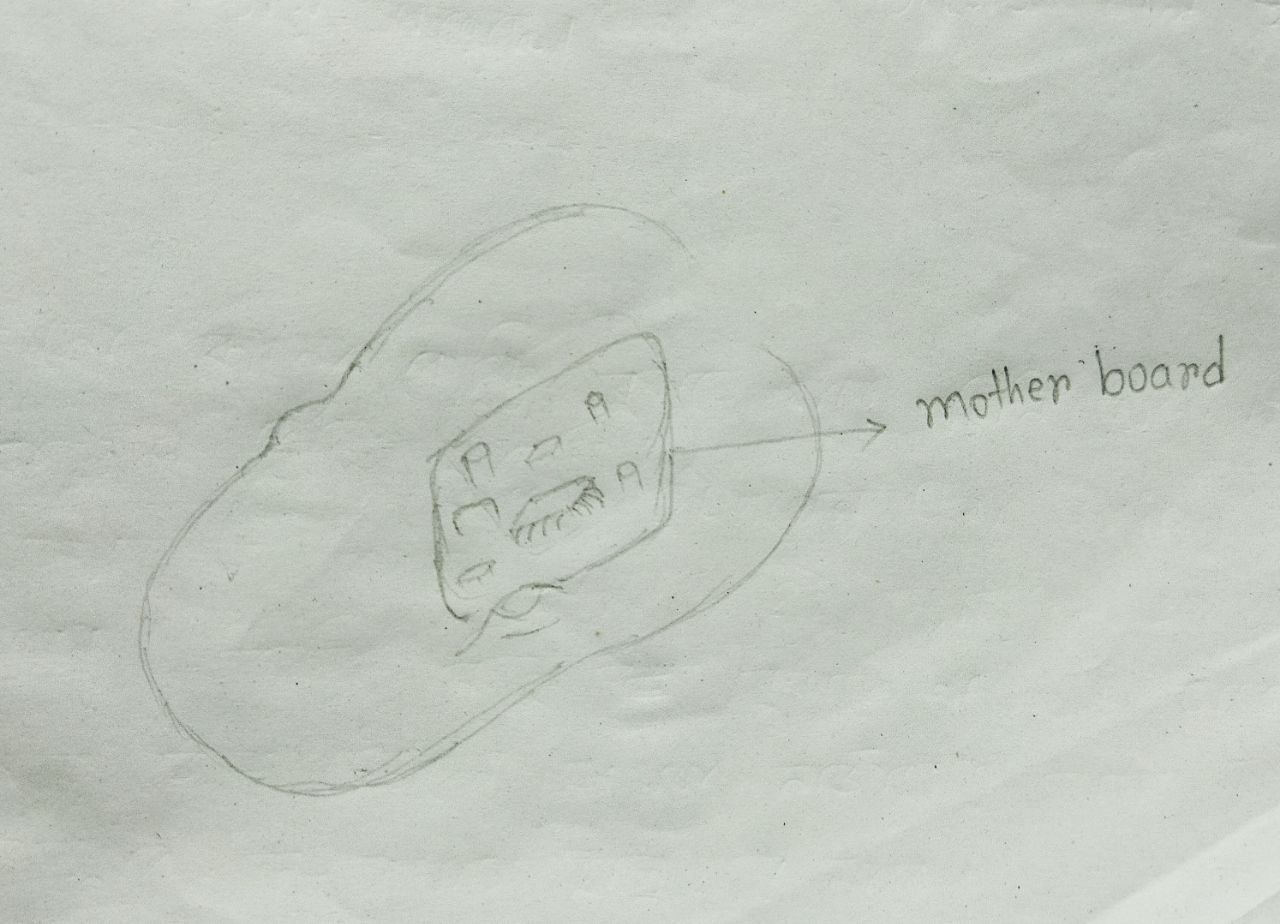 mother board